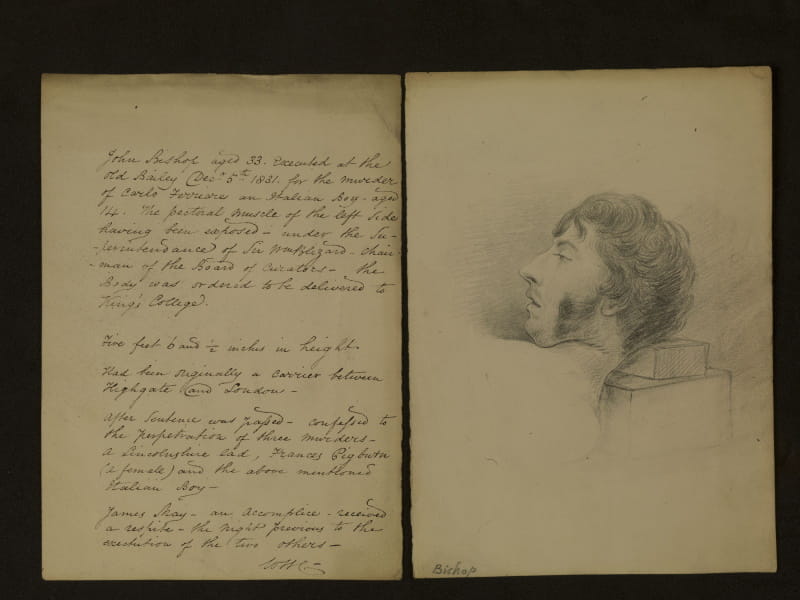 John Bishop aged 33. Executed at the
Old Bailey (Decr. 5th 1831. for the murder
of Carlo Ferriare an Italian Boy - aged
14. The pectoral muscle of the left side
having been exposed - under the Su-
-perintendance of Sir Wm Blizard - Chair-
-man of the Board of Curators - the
Body was ordered to be delivered to
King's College.
Five feet 6 and ½ inches in height.
Had been originally a carrier between
Highgate and London -
After Sentence was passed - confessed to
the perpetration of three murders -
a Lincolnshire lad, Frances Pigburn
(a female) and the above mentioned
Italian Boy -
James May - an accomplice - received
a respite - the night previous to the
execution of the two others -
WHC -
Bishop